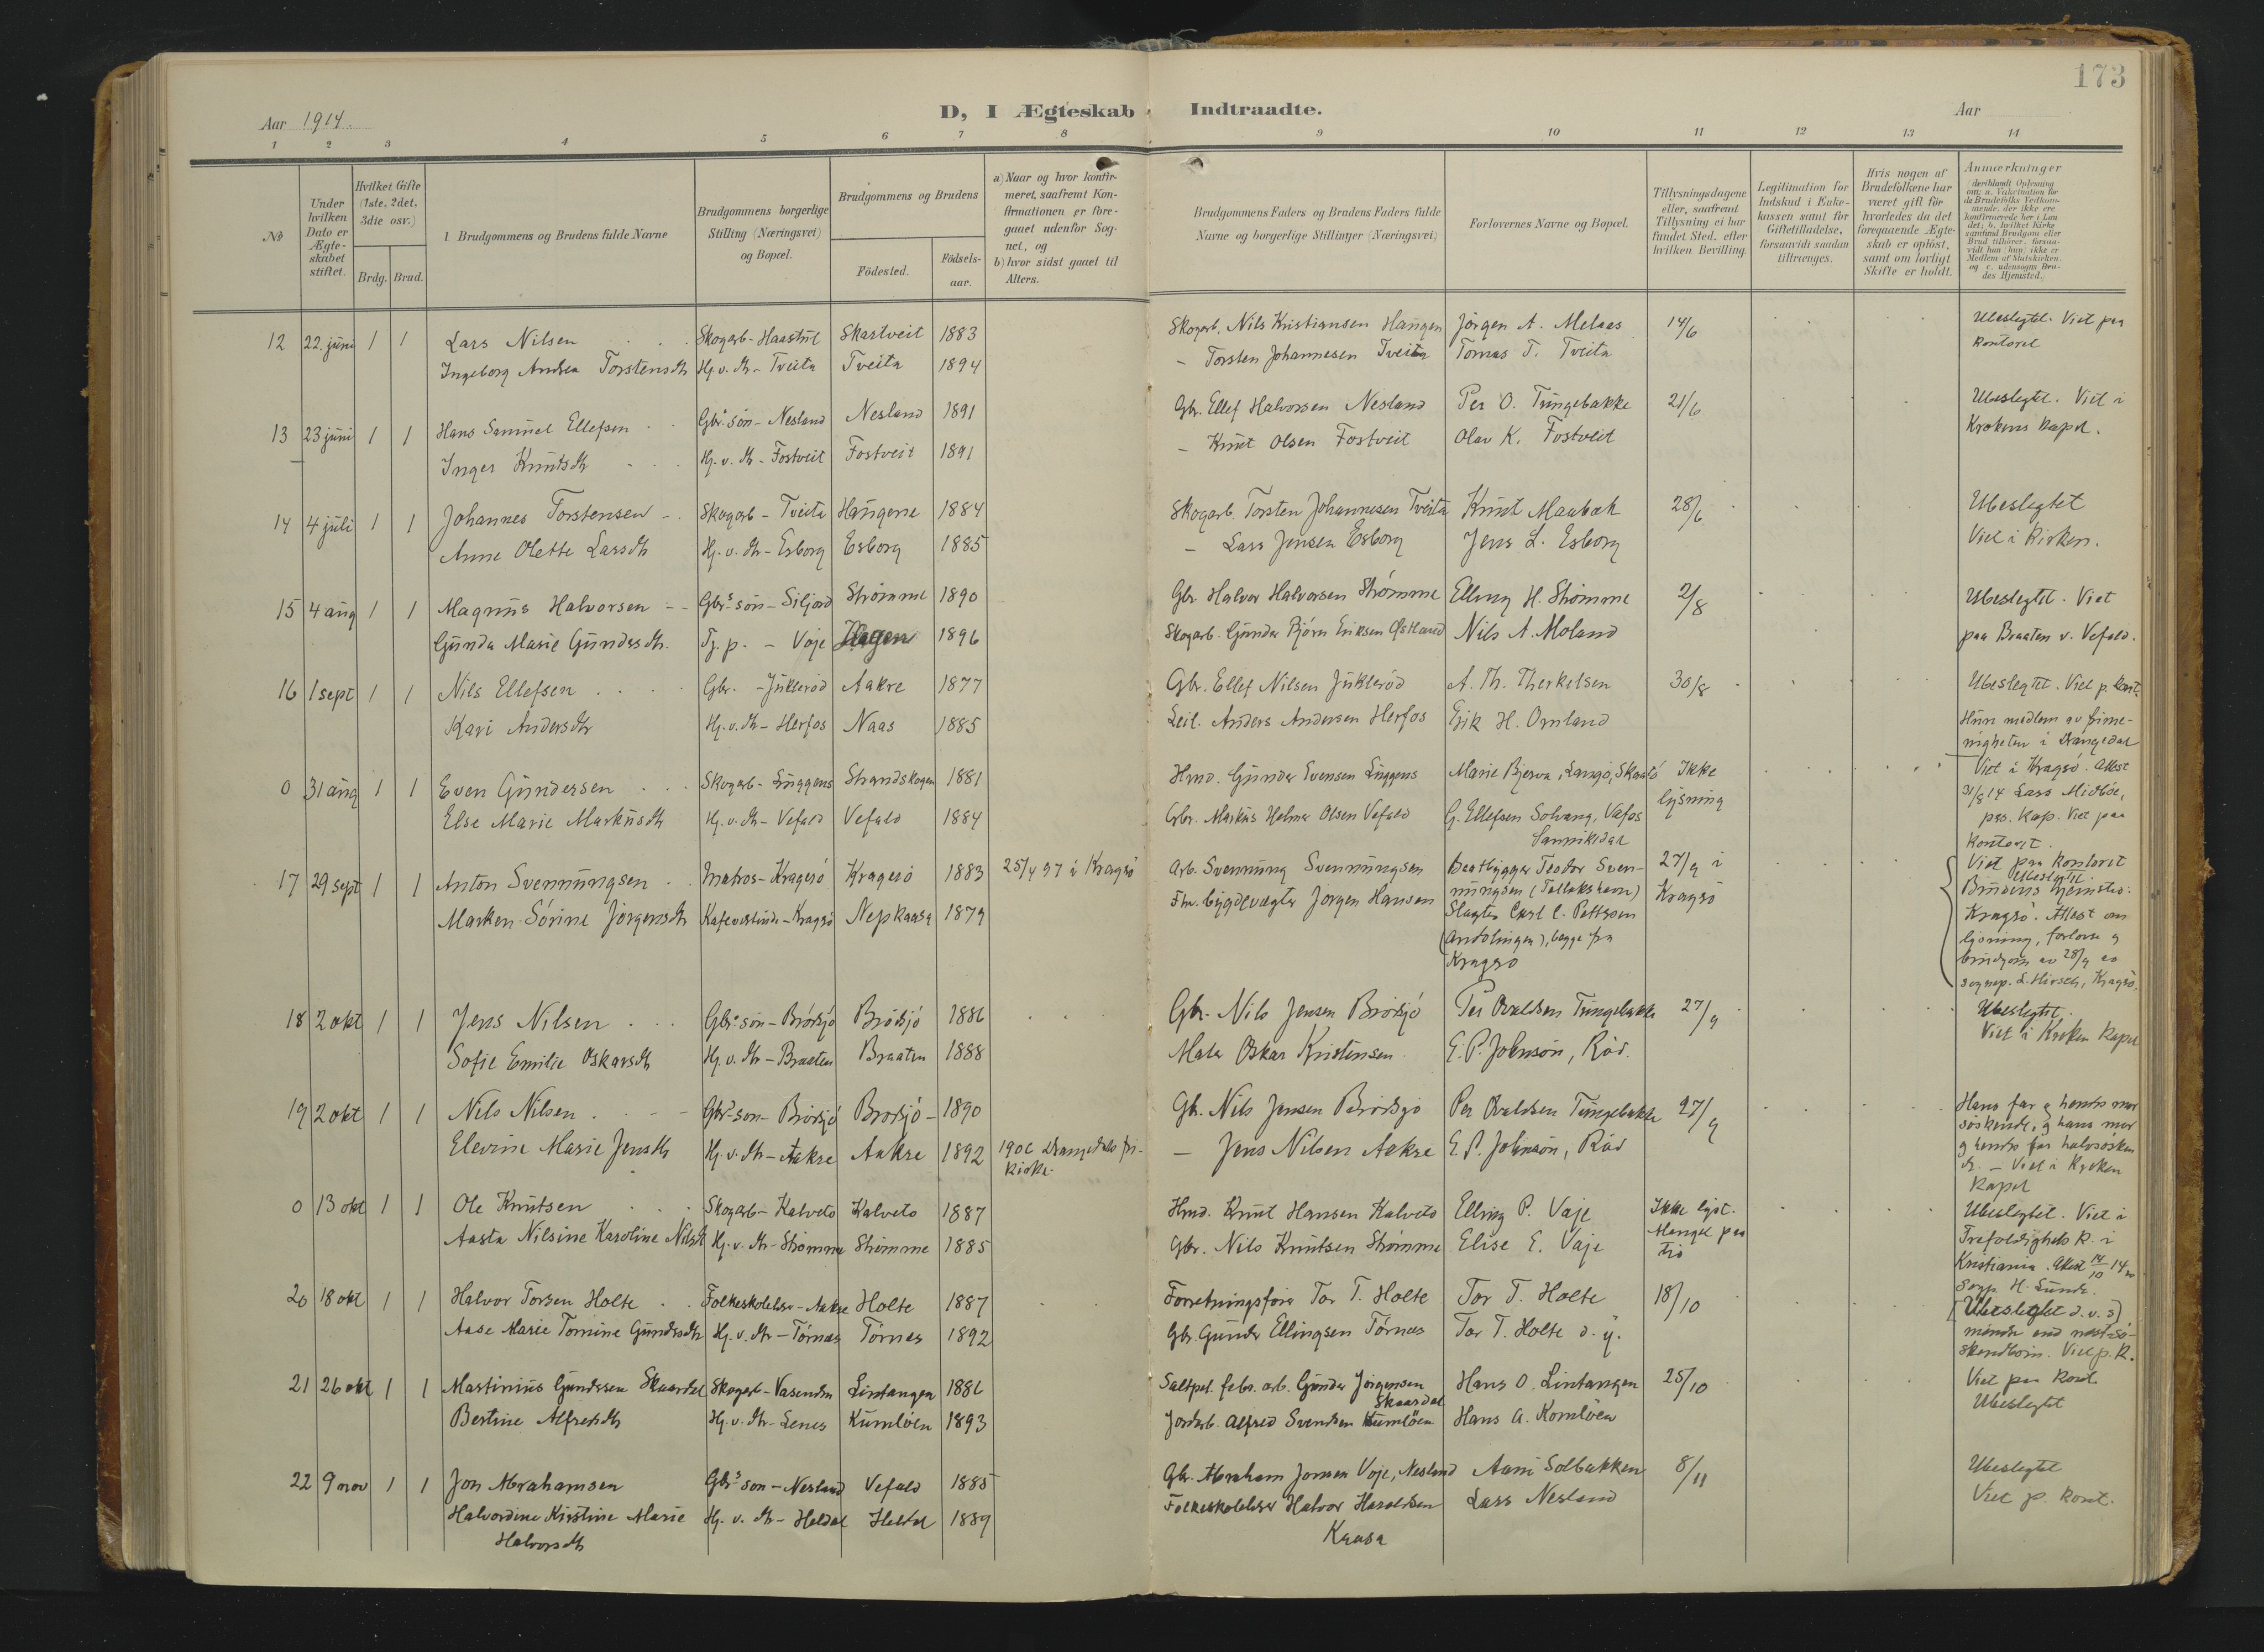 173
D, I Ægteskab Indtraadte.
Aar 1914.
Aar
1 2 3 4 5 6 7 8 9 10 11 12 13 14
№
Under hvilken Dato er Ægteskabet stiftet.
Hvilket Gifte (1ste, 2det, 3die osv.)
Brdg. Brud.
1. Brudgommens og Brudens fulde Navne
Brudgommens borgerlige Stilling (Næringsvei) og Bopæl.
Brudgommens og Brudens
Födested.
Födselsaar.
a) Naar og hvor konfirmeret, saafremt Konfirmationen er foregaaet udenfor Sognet, og
b) hvor sidst gaaet til Alters.
Brudgommens Faders og Brudens Faders fulde Navne og borgerlige Stillinger (Næringsvei)
Forlovernes Navne og Bopæl.
Tillysningsdagene eller, saafremt Tillysning ei har fundet Sted, efter hvilken Bevilling.
Legitimation for Indskud i Enkekassen samt for Giftetilladelse, forsaavidt saadan tiltrænges.
Hvis nogen af Brudefolkene har været gift för hvorledes da det foregaaende Ægteskab er oplöst, samt om lovligt Skifte er holdt.
Anmærkninger
12 22. juni 1 1 Lars Nilsen Skogarb - Haastul Skartveit 1883 Skogarb. Nils Kristiansen Haugen Jörgen A. Melaas 14/6 Ubeslegtet. Viet paa
Ingeborg Andrea Torstensdtr Hj. v. dtr - Tveita Tveita 1894 - Torsten Johannesen Tveita Tomas T. Tveita kontoret
13 23 juni 1 1 Hans Samuel Ellefsen Gbr.s sön - Nesland Nesland 1891 Gbr. Ellef Halvorsen Nesland Per O. Tungebakke 21/6 Ubeslegtet. Viet i
Inger Knutsdtr Hj. v. dtr - Fostveit Fostveit 1891 - Knut Olsen Fostveit Olav K. Fostveit Krokens kapel.
14 4 juli 1 1 Johannes Torstensen Skogarb - Tveita Haugene 1884 Skogarb. Torsten Johannesen Tveita Knut Maabæk 28/6 Ubeslegtet
Anne Olette Larsdtr Hj. v. dtr - Esborg Esborg 1885 - Lars Jensen Esborg Jens L. Esborg Viet i kirken.
15 4 aug 1 1 Magnus Halvorsen Gbr.s sön - Siljord Strömme 1890 Gbr. Halvor Halvorsen Strömme Elling H. Strömme 2/8 Ubeslegtet. Viet
Gunda Marie Gundersdtr. Tj. p. - Voje Hagen 1896 Skogarb. Gunder Björn Eriksen Östland Nils A. Moland paa Braaten v. Vefald.
16 1 sept 1 1 Nils Ellefsen Gbr. - Jukleröd Aakre 1877 Gbr. Ellef Nilsen Jukleröd A. Th. Therkelsen 30/8 Ubeslegtet. Viet p. kont.
Kari Andersdtr Hj. v. dtr - Herfos Naas 1885 Leil. Anders Andersen Herfos Erik H. Ornland Hun medlem av frimenigheten i Drangedal
0 31 aug 1 1 Even Gundersen Skogarb - Luggens Strandskogen 1881 Hmd. Gunder Evensen Luggens Marie Bjerva, Langö, Skaatö Ikke Viet i Kragerö. Attest
Else Marie Markusdtr Hj. v. dtr - Vefald Vefald 1884 Gbr. Markus Helmer Olsen Vefald G. Ellefsen Solvang, Vafos Sannikedal lysning 31/8 14 Lars Midböe, pers. kap. Viet paa kontoret.
17 29 sept 1 1 Anton Svennungsen Matros - Kragerö Kragerö 1883 25/4 97 i Kragerö Arb. Svennung Svennungsen Baatbygger Teodor Svennungsen 27/9 i Viet paa kontoret
Maren Sörine Jörgensdtr Kafevertinde - Kragerö Nepkaasa 1879 Fhv. bygdevægter Jörgen Hansen Slagter Carl C. Pettersen begge fra Kragerö Kragerö Ubeslegtet. Brudens hjemsted: Kragerö. Attest om lysning, forlover og brudgom av 28/9 av sognep. L. Hirsch, Kragerö.
18 2 okt 1 1 Jens Nilsen Gbr.s sön - Brödsjö Brödsjö 1886 Gbr. Nils Jensen Brödsjö Per Ovaldsen Tungebakke 27/9 Ubeslegtet.
Sofie Emilie Oskarsdtr Hj. v. dtr - Braaten Braaten 1888 Maler Oskar Kristensen E. P. Johnson, Röd. Viet i Kroken kapel
19 2 okt 1 1 Nils Nilsen Gbr.s sön - Brödsjö Brödsjö 1890 Gbr. Nils Jensen Brödsjö Per Ovaldsen Tungebakke 27/9 Hans far og hendes mor söskende, og hans mor
Elevine Marie Jensdtr Hj. v. dtr - Aakre Aakre 1892 1906 Drangedals frikirke. - Jens Nilsen Aakre E. P. Johnson, Röd og hendes far halvsösken - Viet i Kroken kapel
0 13 okt 1 1 Ole Knutsen Skogarb - Kalveto Kalveto 1887 Hmd. Knut Hansen Kalveto Elling P. Vaje Ikke lyst. Ubeslegtet. Viet i
Aasta Nilsine Karoline Nilsdtr Hj. v. dtr - Strömme Strömme 1885 Gbr. Nils Knutsen Strömme Elise E. Vaje Mangel paa tid Trefoldigheds k. i Kristiania. Attest 14/10 14 av Sogp. H. Sunde.
20 18 okt 1 1 Halvor Torsen Holte Folkeskolelær - Aakre Holte 1887 Forretningsförer Tor T. Holte Tor T. Holte 18/10 [Ubeslegtet d. v. s]
Aase Marie Tomine Gundersdtr Hj. v. dtr - Törnes Törnes 1892 Gbr. Gunder Ellingsen Törnes Tor T. Holte d. y. mindre end næst-söskendbörn. Viet p. k.
21 26 okt 1 1 Martinius Gundersen Skaardal Skogarb - Vasenden Lintangen 1886 Saltpet. fabr. arb. Gunder Jörgensen Skaardal Hans O. Lintangen 25/10 Viet paa kont
Bertine Alfredsdtr Hj. v. dtr - Lenes Kumlöen 1893 Jordarb. Alfred Svendsen Kumlöen Hans A. Komlöen Ubeslegtet
22 9 nov 1 1 Jon Abrahamsen Gbr.s sön - Nesland Vefald 1885 Gbr. Abraham Jonsen Voje, Nesland Aani Solbakken 8/11 Ubeslegtet
Halvordine Kirstine Marie Halvorsdtr Hj. v. dtr - Heldal Heldal 1889 Folkeskolelærer Halvor Haraldsen Kaasa Lars Nesland Viet p. kont.